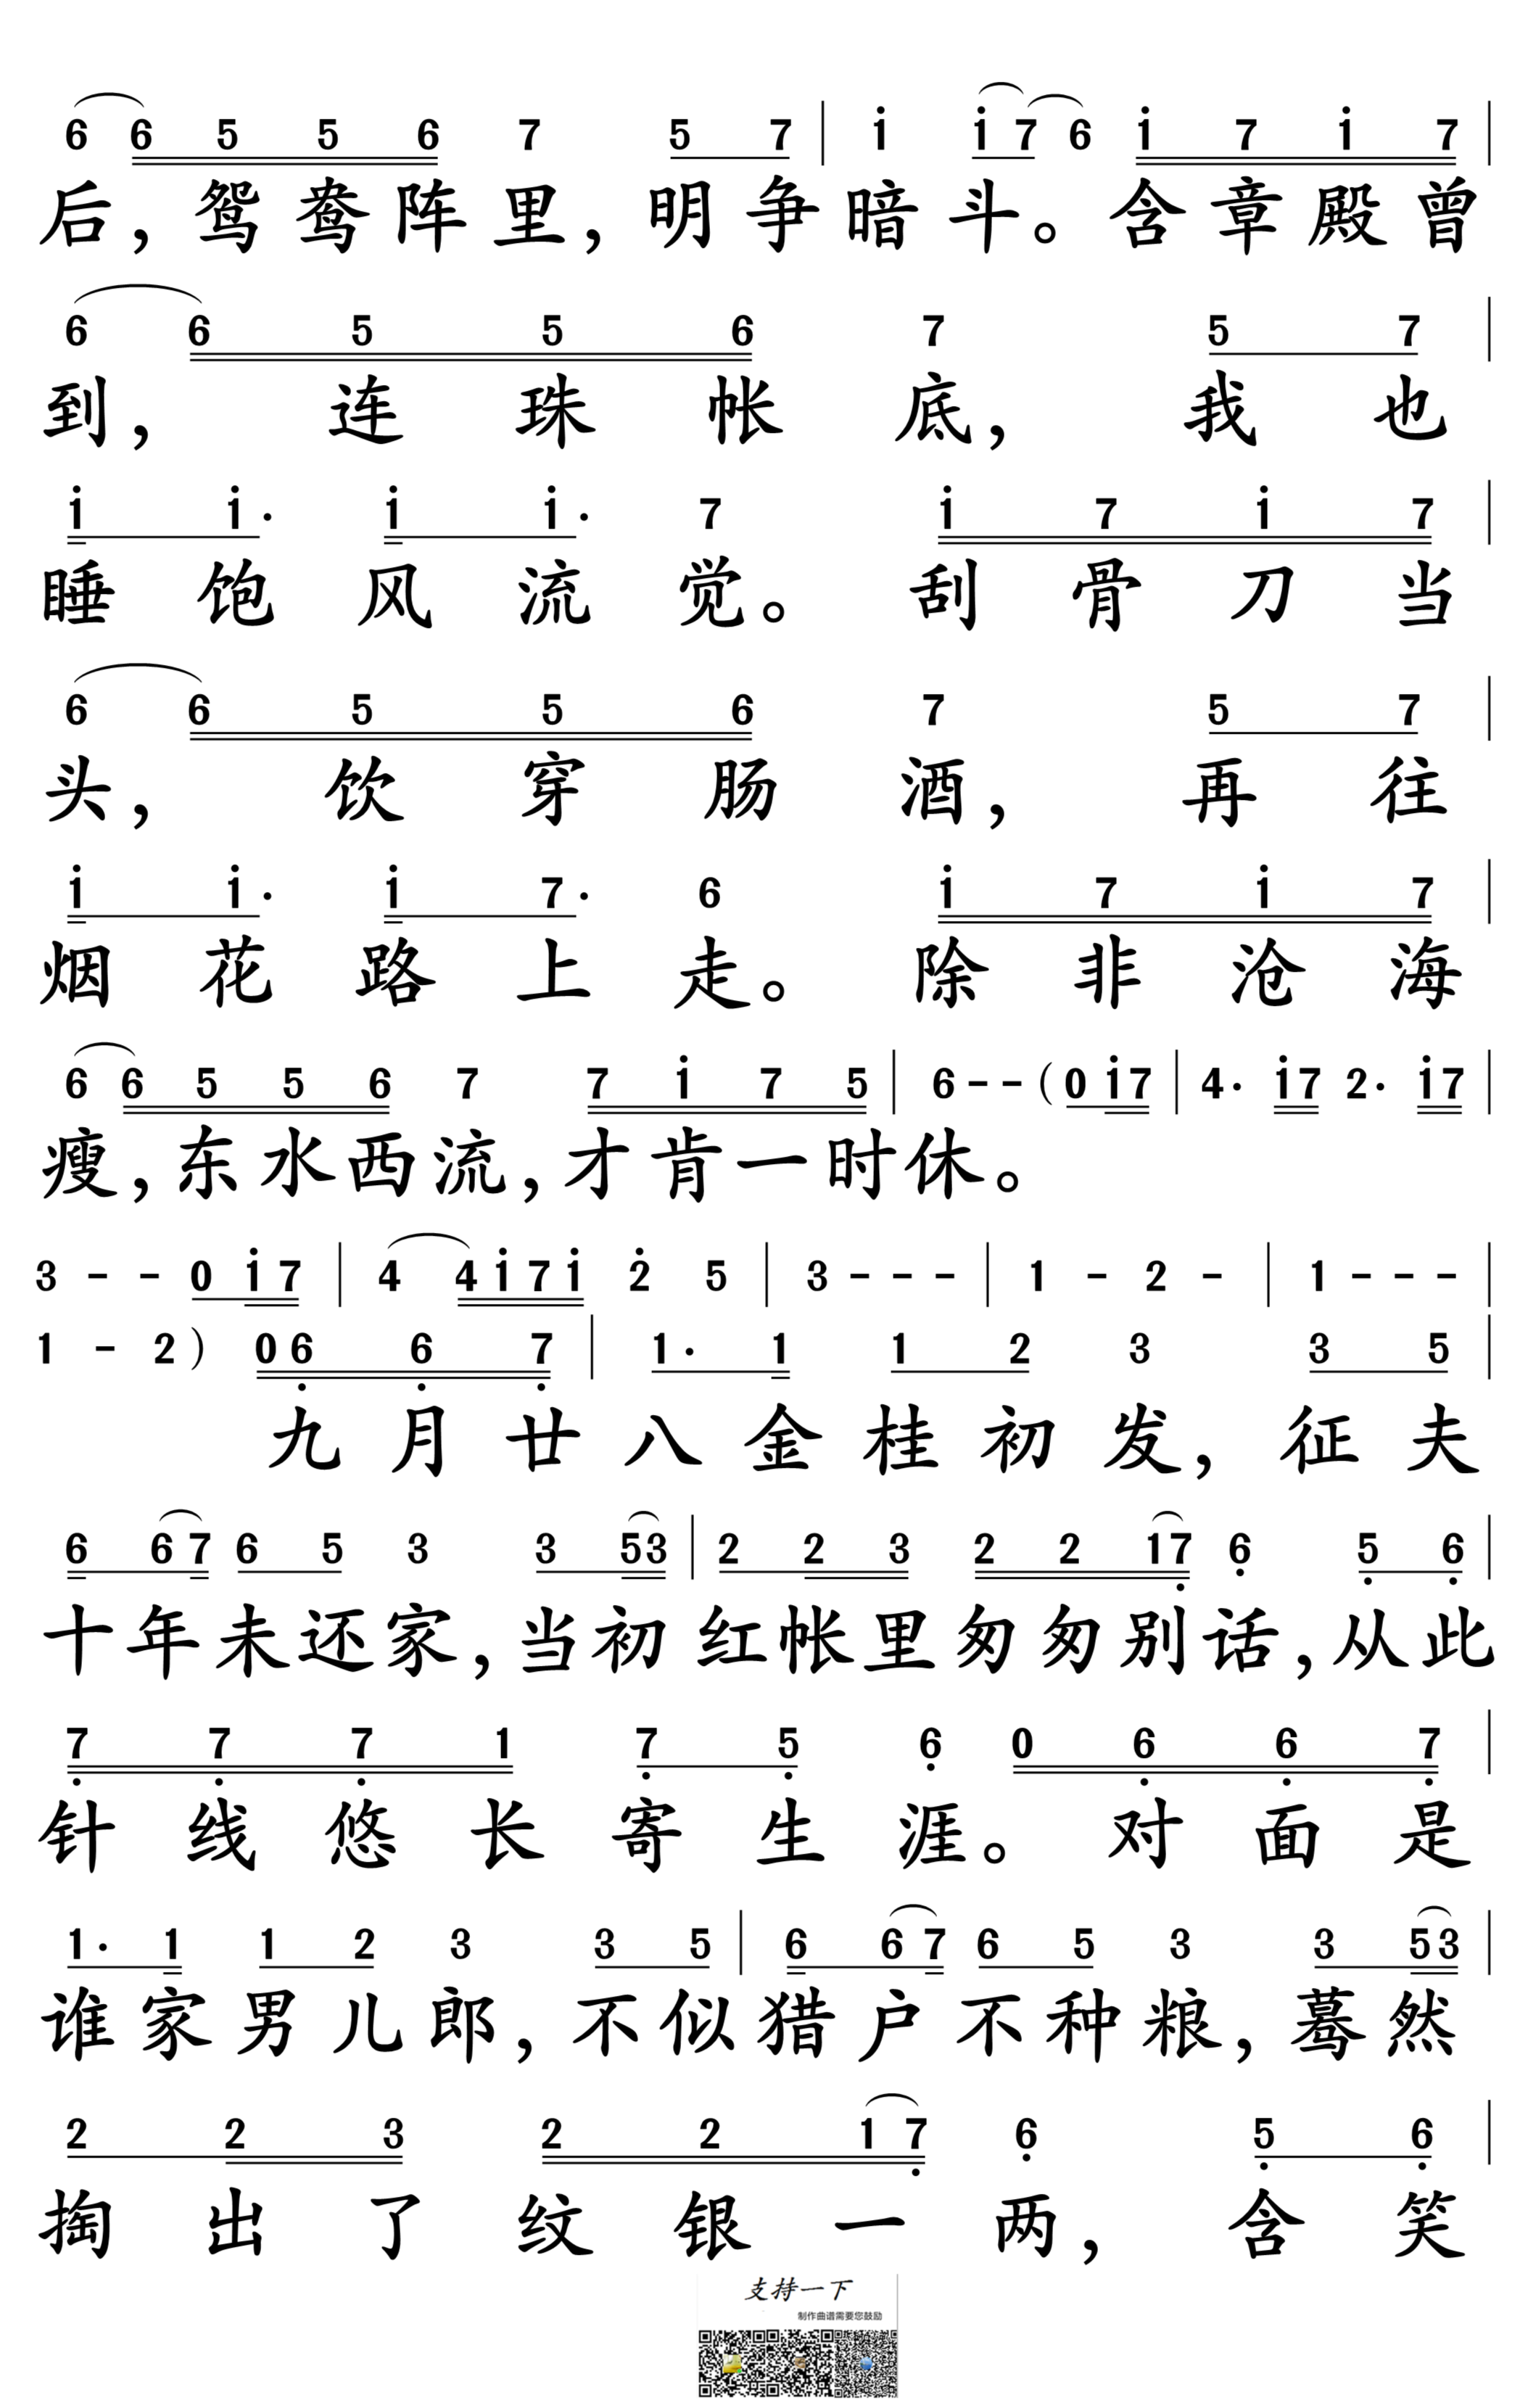 6 6 5 5 6 7 5 7 | i i 7 6 i 7 i 7 |
后，鸳鸯阵里，明争暗斗。含章殿曾
6 6 5 5 6 7 5 7 |
到，连珠帐底，我也
i i· i i· 7 i 7 i 7 |
睡饱风流觉。刮骨刀当
6 6 5 5 6 7 5 7 |
头，饮穿肠酒，再往
i i· i 7· 6 i 7 i 7 |
烟花路上走。除非沧海
6 6 5 5 6 7 7 i 7 5 | 6 - - (0 i 7 | 4· i 7 2· i 7 |
瘦，东水西流，才肯一时休。
3 - - 0 i 7 | 4 4 i 7 i 2̇ 5 | 3 - - - | 1 - 2 - | 1 - - - |
1 - 2 ) 0 6̣ 6̣ 7̣ | 1· 1 1 2 3 3 5 |
九月廿八金桂初发，征夫
6 6 7 6 5 3 3 5 3 | 2 2 3 2 2 1 7̣ 6̣ 5̣ 6̣ |
十年未还家，当初红帐里匆匆别话，从此
7̣ 7̣ 7̣ 1 7̣ 5̣ 6̣ 0 6̣ 6̣ 7̣ |
针线悠长寄生涯。对面是
1· 1 1 2 3 3 5 | 6 6 7 6 5 3 3 5 3 |
谁家男儿郎，不似猎户不种粮，蓦然
2 2 3 2 2 1 7̣ 6̣ 5̣ 6̣ |
掏出了纹银一两，含笑
支持一下
制作曲谱需要您鼓励